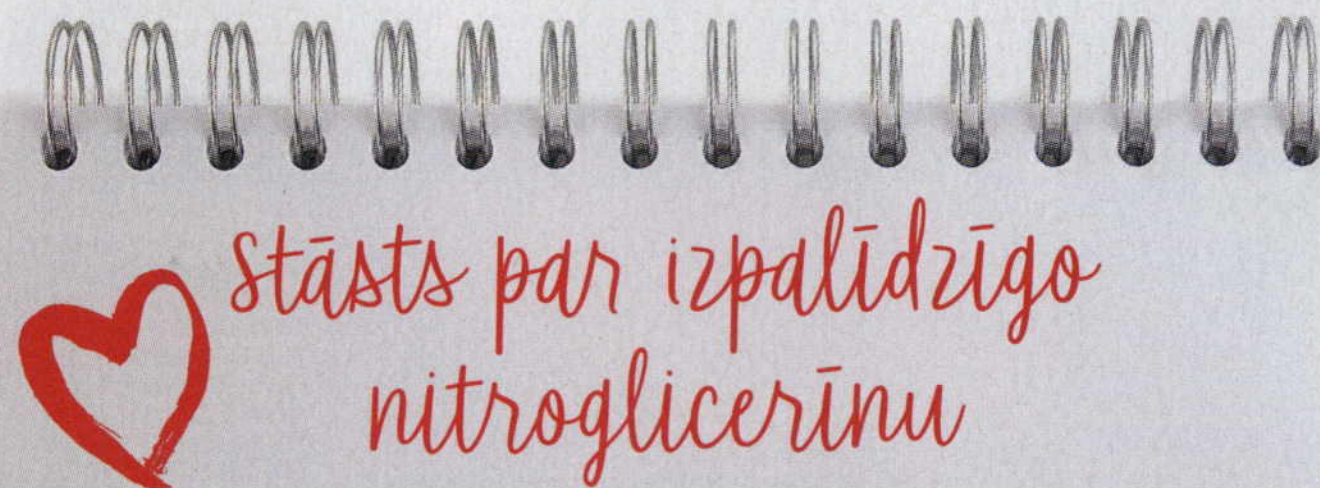 Stāsts par izpalīdzīgo
nitroglicerīnu